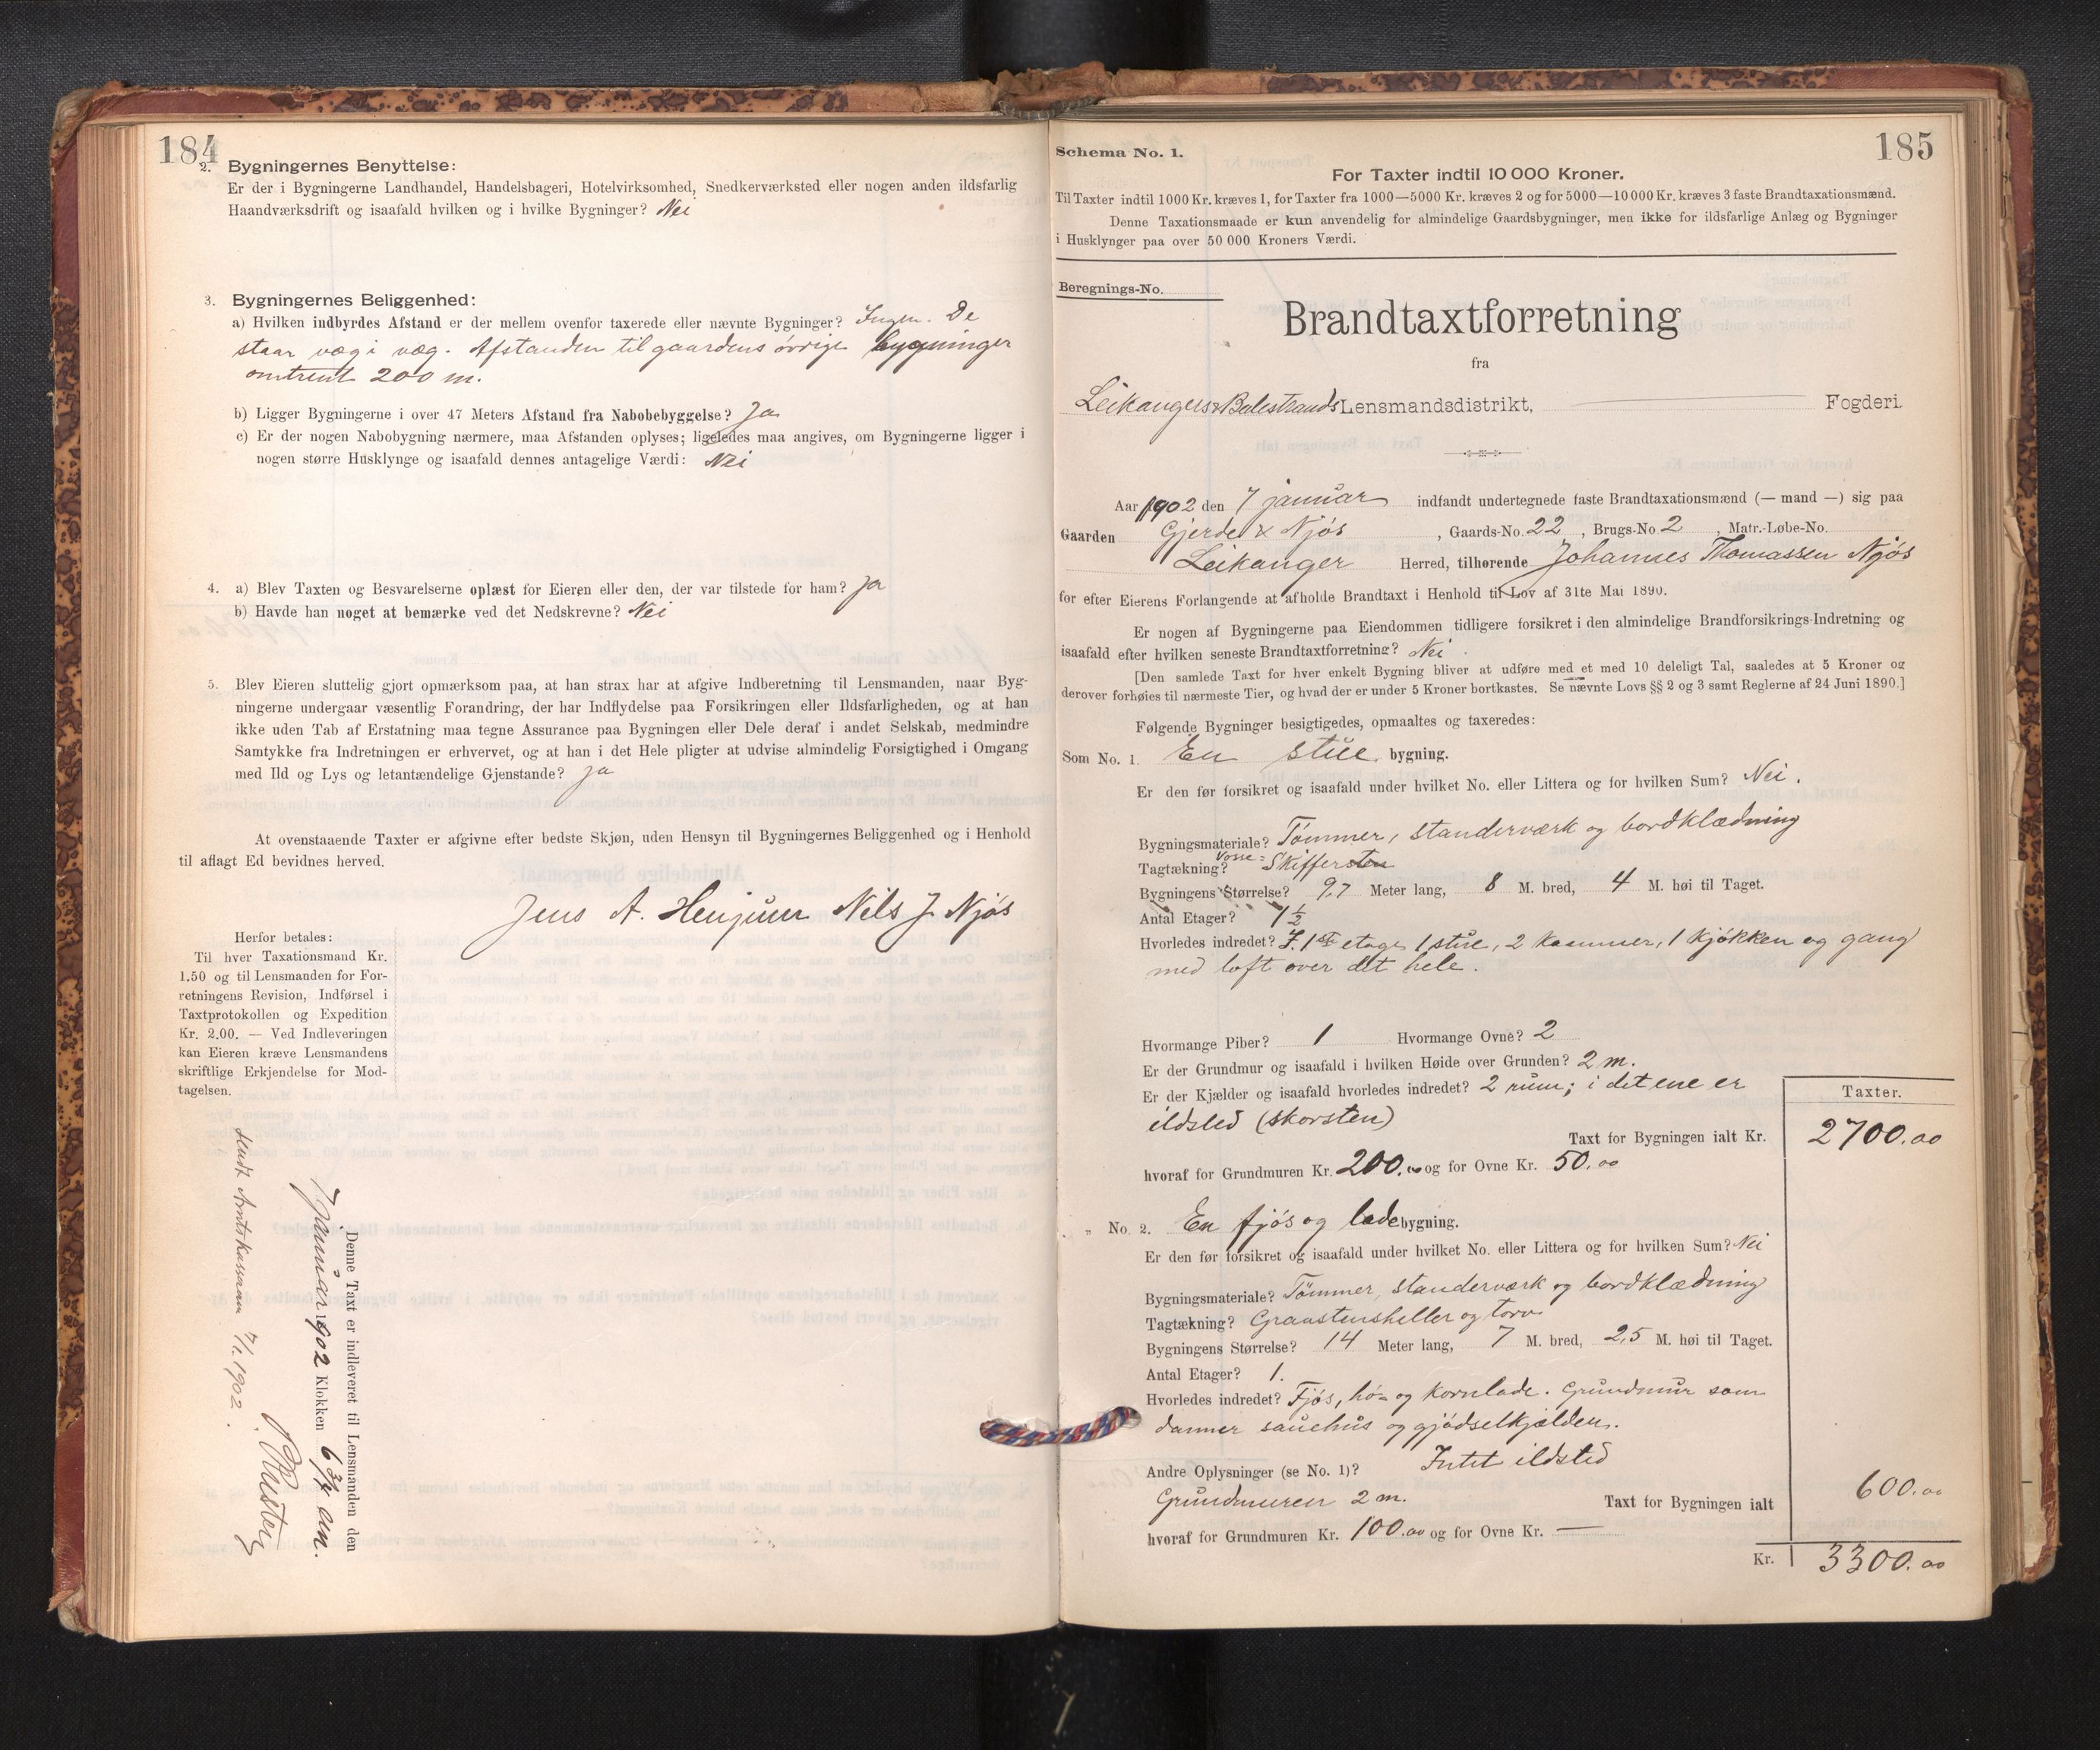 184
2. Bygningernes Benyttelse:
Er der i Bygningerne Landhandel, Handelsbageri, Hotelvirksomhed, Snedkerværksted eller nogen anden ildsfarlig
Haandværksdrift og isaafald hvilken og i hvilke Bygninger? Nei
3. Bygningernes Beliggenhed:
a) Hvilken indbyrdes Afstand er der mellem ovenfor taxerede eller nævnte Bygninger? Ingen. De
staar væg i væg. Afstanden til gaardens øvrige bygninger
omtrent 200 m.
b) Ligger Bygningerne i over 47 Meters Afstand fra Nabobebyggelse? Ja
c) Er der nogen Nabobygning nærmere, maa Afstanden oplyses; ligeledes maa angives, om Bygningerne ligger i
nogen større Husklynge og isaafald dennes antagelige Værdi: Nei
4. a) Blev Taxten og Besvarelserne oplæst for Eieren eller den, der var tilstede for ham? Ja
b) Havde han noget at bemærke ved det Nedskrevne? Nei
5. Blev Eieren sluttelig gjort opmærksom paa, at han strax har at afgive Indberetning til Lensmanden, naar Byg-
ningerne undergaar væsentlig Forandring, der har Indflydelse paa Forsikringen eller Ildsfarligheden, og at han
ikke uden Tab af Erstatning maa tegne Assurance paa Bygningen eller Dele deraf i andet Selskab, medmindre
Samtykke fra Indretningen er erhvervet, og at han i det Hele pligter at udvise almindelig Forsigtighed i Omgang
med Ild og Lys og letantændelige Gjenstande? Ja
At ovenstaaende Taxter er afgivne efter bedste Skjøn, uden Hensyn til Bygningernes Beliggenhed og i Henhold
til aflagt Ed bevidnes herved.
Jens A. Henjum Nils J. Njøs
Herfor betales:
Til hver Taxationsmand Kr.
1.50 og til Lensmanden for For-
retningens Revision, Indførsel i
Taxtprotokollen og Expedition
Kr. 2.00. — Ved Indleveringen
kan Eieren kræve Lensmandens
skriftlige Erkjendelse for Mod-
tagelsen.
Denne Taxt er indleveret til Lensmanden den
7 januar 1902 Klokken 6 3/4 em.
Sendt Amtskassereren 7/1.1902.
185
Schema No. 1.
For Taxter indtil 10 000 Kroner.
Til Taxter indtil 1000 Kr. kræves 1, for Taxter fra 1000—5000 Kr. kræves 2 og for 5000—10 000 Kr. kræves 3 faste Brandtaxationsmænd.
Denne Taxationsmaade er kun anvendelig for almindelige Gaardsbygninger, men ikke for ildsfarlige Anlæg og Bygninger
i Husklynger paa over 50 000 Kroners Værdi.
Beregnings-No.
Brandtaxtforretning
fra
Leikanger & Balestrands Lensmandsdistrikt, Fogderi.
Aar 1902 den 7 januar indfandt undertegnede faste Brandtaxationsmænd (— mand —) sig paa
Gaarden Gjerde & Njøs, Gaards-No. 22, Brugs-No 2, Matr.-Løbe-No.
Leikanger Herred, tilhørende Johannes Thomassen Njøs
for efter Eierens Forlangende at afholde Brandtaxt i Henhold til Lov af 31te Mai 1890.
Er nogen af Bygningerne paa Eiendommen tidligere forsikret i den almindelige Brandforsikrings-Indretning og
isaafald efter hvilken seneste Brandtaxtforretning? Nei
[Den samlede Taxt for hver enkelt Bygning bliver at udføre med et med 10 deleligt Tal, saaledes at 5 Kroner og
derover forhøies til nærmeste Tier, og hvad der er under 5 Kroner bortkastes. Se nævnte Lovs §§ 2 og 3 samt Reglerne af 24 Juni 1890.]
Følgende Bygninger besigtigedes, opmaaltes og taxeredes:
Som No. 1. En stue bygning.
Er den før forsikret og isaafald under hvilket No. eller Littera og for hvilken Sum? Nei.
Bygningsmateriale? Tømmer, standerværk og bordklædning
Tagtækning? Vosse= Skiffersten
Bygningens Størrelse? 9,7 Meter lang, 8 M. bred, 4 M. høi til Taget.
Antal Etager? 1 1/2
Hvorledes indredet? I. 1ste etage 1 stue, 2 kammer, 1 kjøkken og gang
med loft over det hele.
Hvormange Piber? 1 Hvormange Ovne? 2
Er der Grundmur og isaafald i hvilken Høide over Grunden? 2 m.
Er der Kjælder og isaafald hvorledes indredet? 2 rum; i det ene er
ildsted (skorsten)
Taxter.
Taxt for Bygningen ialt Kr. 2700.00
hvoraf for Grundmuren Kr. 200.00 og for Ovne Kr. 50.00
" No. 2. En fjøs og lade bygning.
Er den før forsikret og isaafald under hvilket No. eller Littera og for hvilken Sum? Nei
Bygningsmateriale? Tømmer, standerværk og bordklædning
Tagtækning? Graastensheller og torv
Bygningens Størrelse? 14 Meter lang, 7 M. bred, 2,5 M. høi til Taget.
Antal Etager? 1.
Hvorledes indredet? Fjøs, hø= og kornlade. Grundmur som
danner sauehus og gjødselkjælder.
Andre Oplysninger (se No. 1)? Intet ildsted
Grundmuren 2 m. Taxt for Bygningen ialt 600.00
hvoraf for Grundmuren Kr. 100.00 og for Ovne Kr. —
Kr. 3300.00